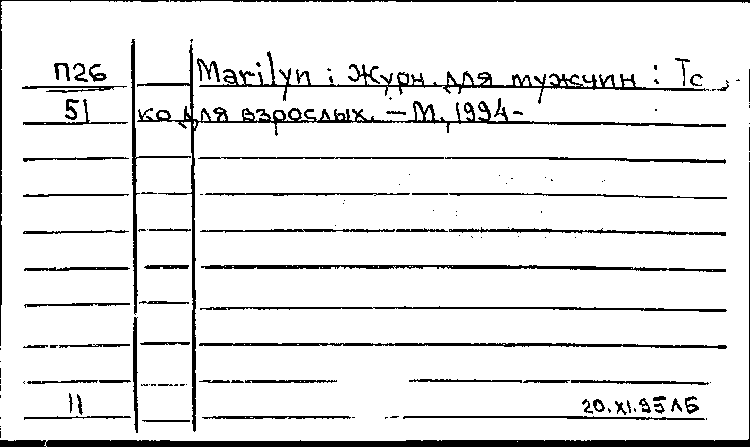 П26 Marilyn : Журн. для мужчин : Тс
51 ко для взрослых. – М., 1994-
11 20.XI.95 ЛБ